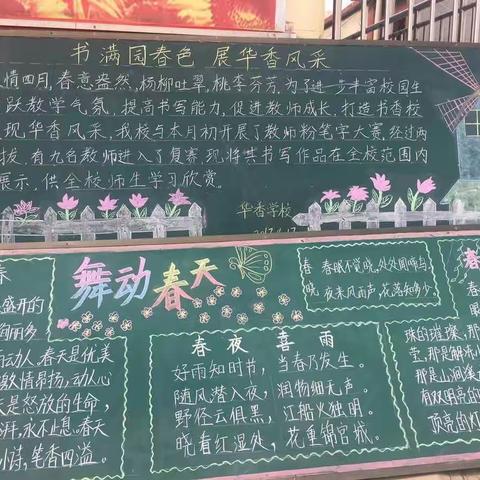 书满园春色 展华香风采
情四月,春意盎然,杨柳吐翠,桃李芬芳,为了进一步丰富校园生
跃教学气氛,提高书写能力,促进教师成长,打造书香校
现华香风采,我校与本月初开展了教师粉笔字大赛,经过两
拔,有九名教师进入了复赛,现将其书写作品在全校范围内
展示,供全校师生学习欣赏。
华香学校
舞动春天
春
盛开的
动人,春天是优美
激情昂扬,动人心
是怒放的生命,
湃,永不止息。春天
诗,笔香四溢。
春夜喜雨
好雨知时节,当春乃发生。
随风潜入夜,润物细无声。
野径云俱黑,江船火独明。
晓看红湿处,花重锦官城。
春 春眠不觉晓,处处闻啼鸟,
晓 夜来风雨声,花落知多少。
春
珠的璀璨,那
莹,那是解冻
那是山涧溪
有双明亮的
顶亮的灯